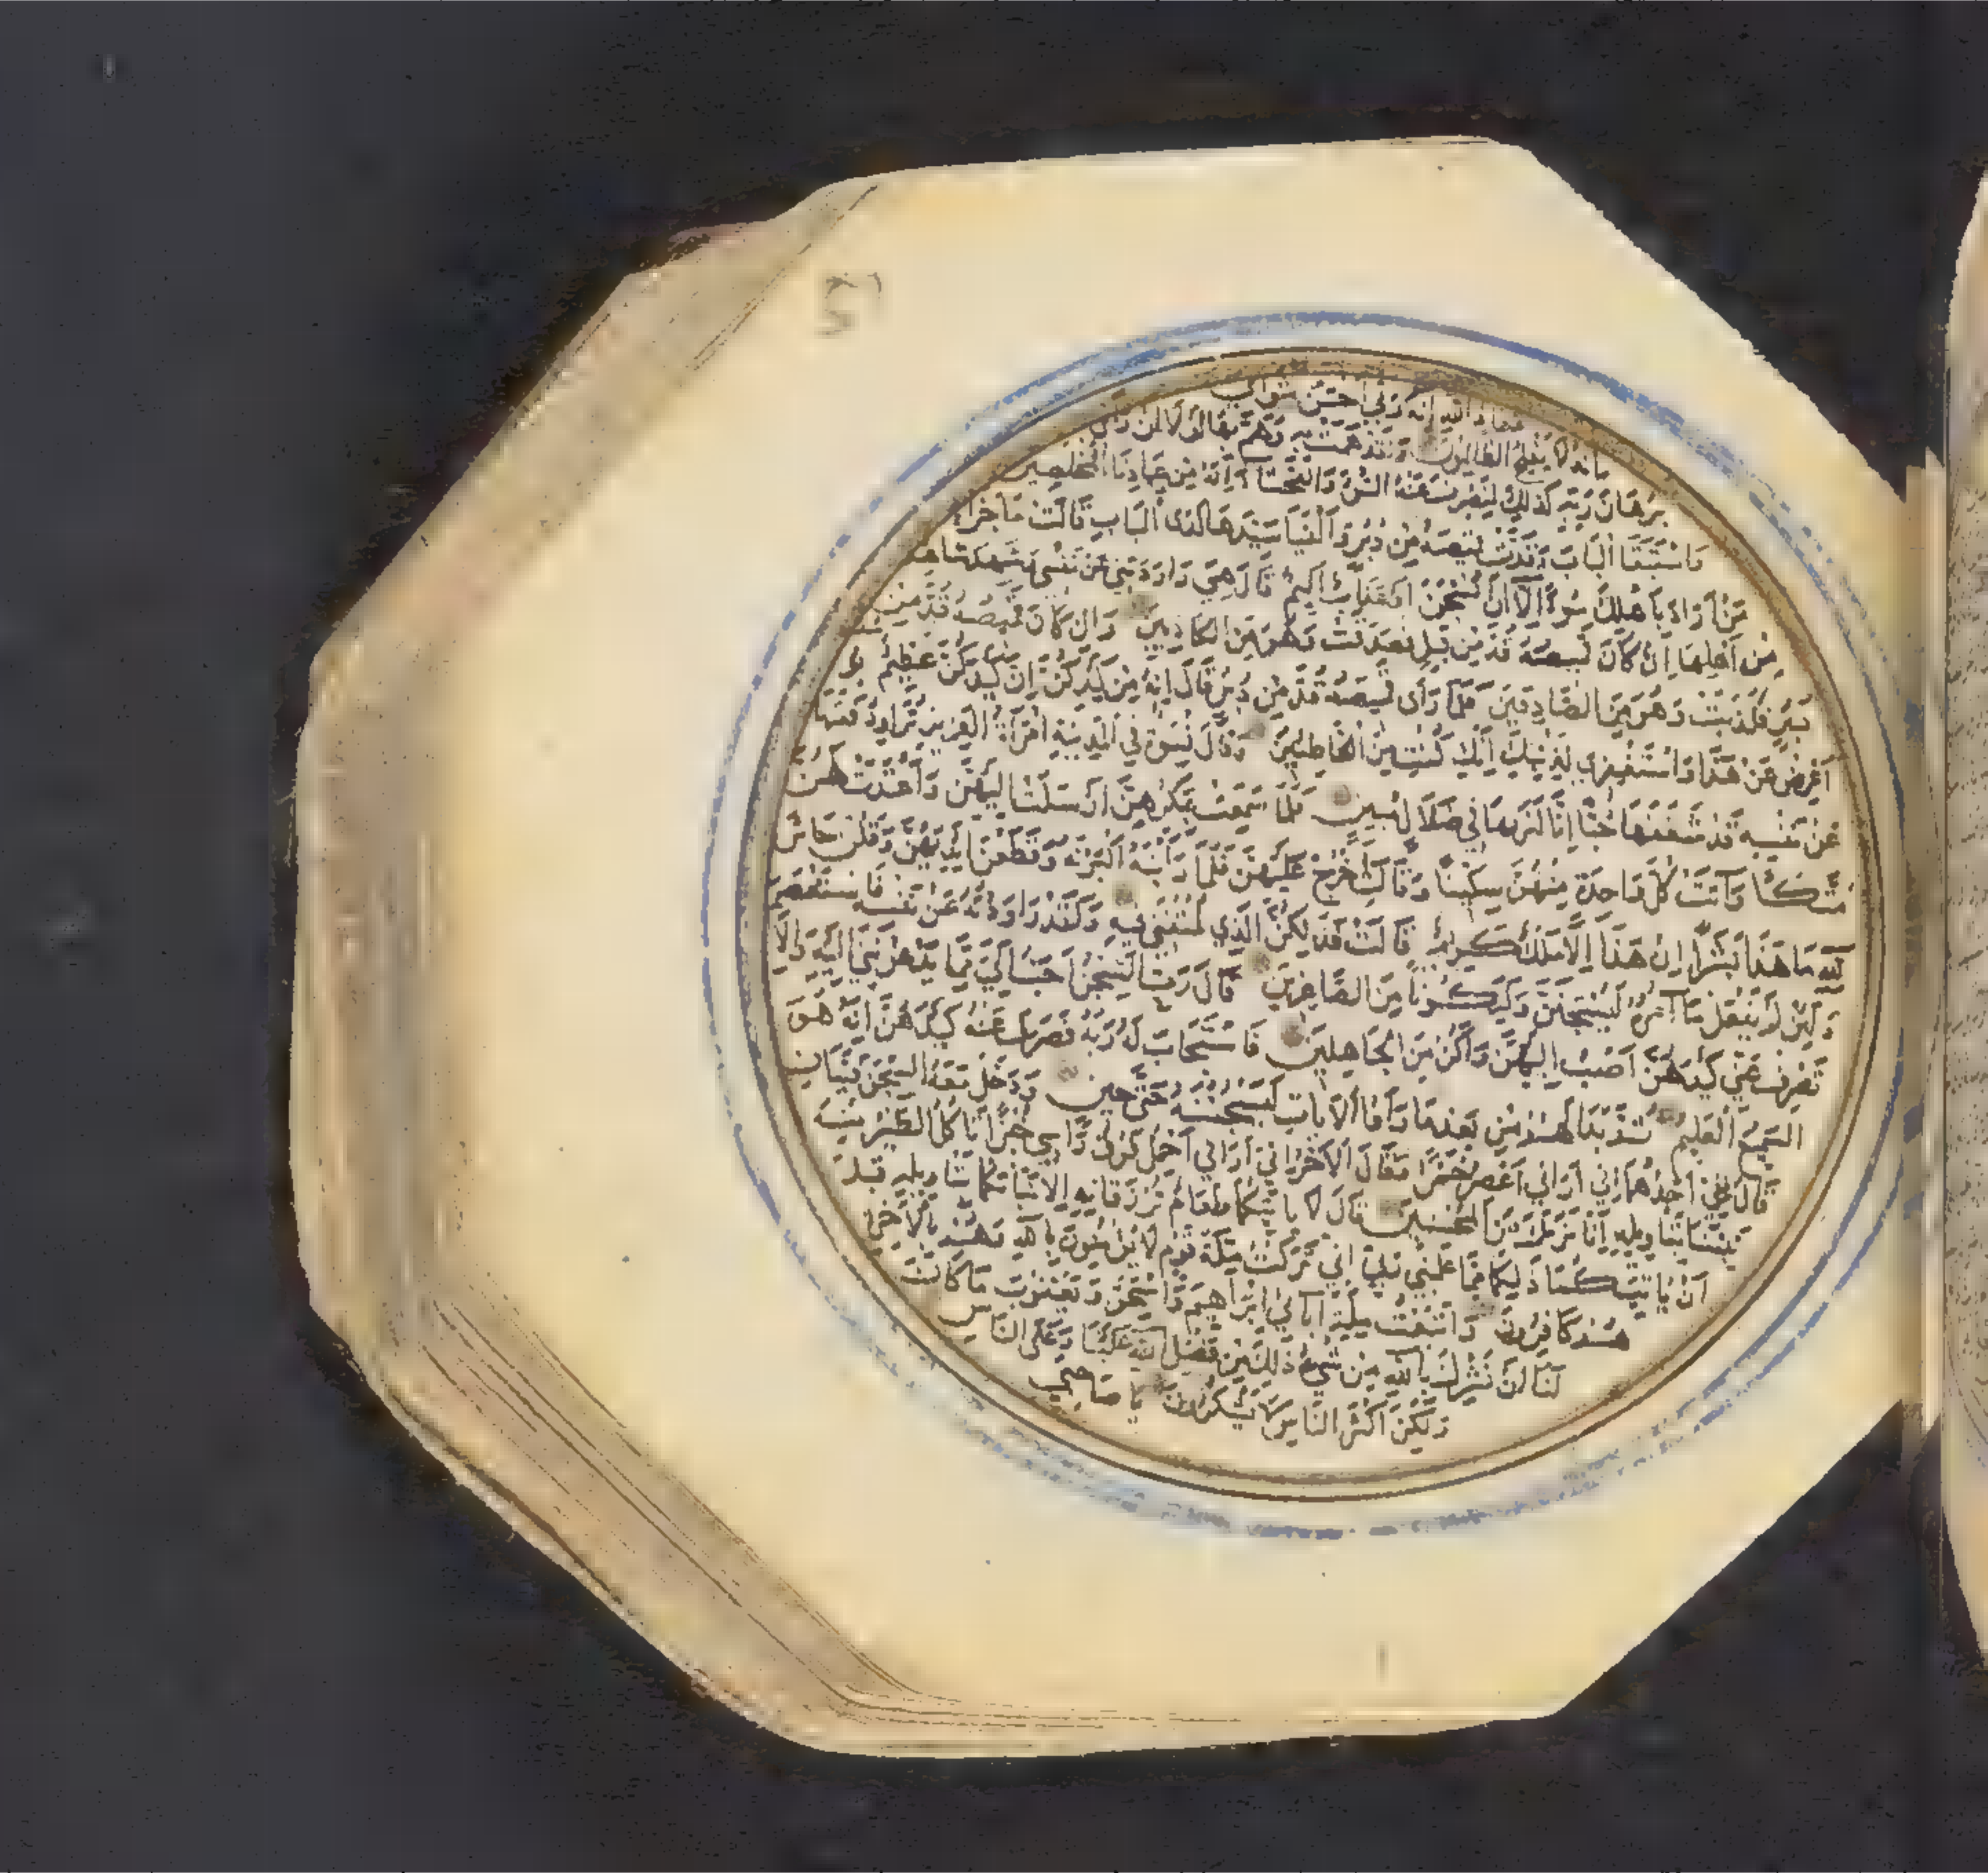 معاذ الله انه ربي احسن مثواي
انه لا يفلح الظالمون ولقد همت به وهم بها لولا ان رأى
برهان ربه كذلك لنصرف عنه السوء والفحشاء انه من عبادنا المخلصين
واستبقا الباب وقدت قميصه من دبر والفيا سيدها لدى الباب قالت ما جزاء
من اراد باهلك سوءا الا ان يسجن او عذاب اليم قال هي راودتني عن نفسي وشهد شاهد
من اهلها ان كان قميصه قد من قبل فصدقت وهو من الكاذبين وان كان قميصه قد من
دبر فكذبت وهو من الصادقين فلما رأى قميصه قد من دبر قال انه من كيدكن ان كيدكن عظيم
اعرض عن هذا واستغفري لذنبك انك كنت من الخاطئين وقال نسوة في المدينة امرأة العزيز تراود فتيها
عن نفسه قد شغفها حبا انا لنريها في ضلال مبين فلما سمعت بمكرهن ارسلت اليهن واعتدت لهن
متكئا وآتت كل واحدة منهن سكينا وقالت اخرج عليهن فلما رأينه اكبرنه وقطعن ايديهن وقلن حاش
لله ما هذا بشرا ان هذا الا ملك كريم قالت فذلكن الذي لمتنني فيه ولقد راودته عن نفسه فاستعصم
ولئن لم يفعل ما آمره ليسجنن وليكونا من الصاغرين قال رب السجن احب الي مما يدعونني اليه والا
تصرف عني كيدهن اصب اليهن واكن من الجاهلين فاستجاب له ربه فصرف عنه كيدهن انه هو
السميع العليم ثم بدا لهم من بعد ما رأوا الايات ليسجننه حتى حين ودخل معه السجن فتيان
قال احدهما اني اراني اعصر خمرا وقال الآخر اني اراني احمل فوق رأسي خبزا تأكل الطير منه
نبئنا بتأويله انا نريك من المحسنين قال لا يأتيكما طعام ترزقانه الا نبأتكما بتأويله قبل
ان يأتيكما ذلكما مما علمني ربي اني تركت ملة قوم لا يؤمنون بالله وهم بالآخرة
هم كافرون واتبعت ملة آبائي ابراهيم واسحق ويعقوب ما كان
لنا ان نشرك بالله من شيء ذلك من فضل الله علينا وعلى الناس
ولكن اكثر الناس لا يشكرون يا صاحبي